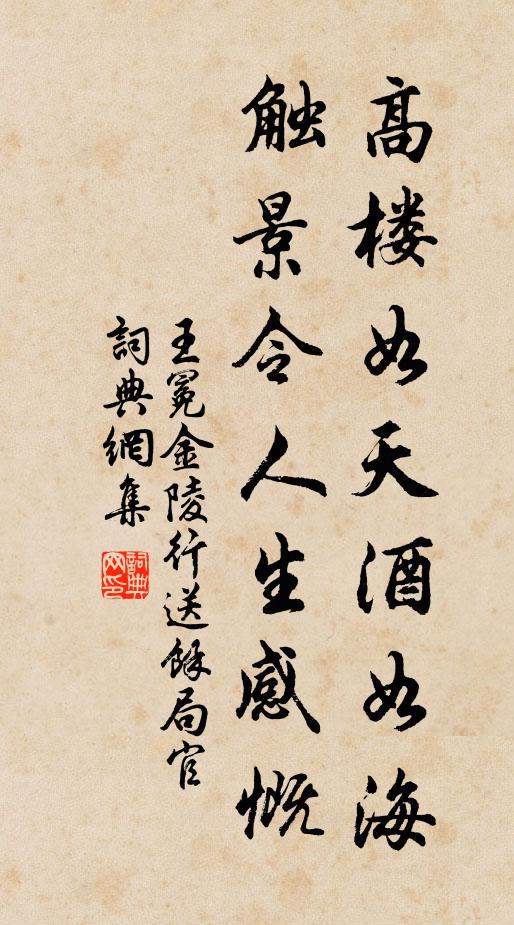 高楼如天酒如海
触景令人生感慨
王冕金陵行送餘局官
詞典網集
詞典網印